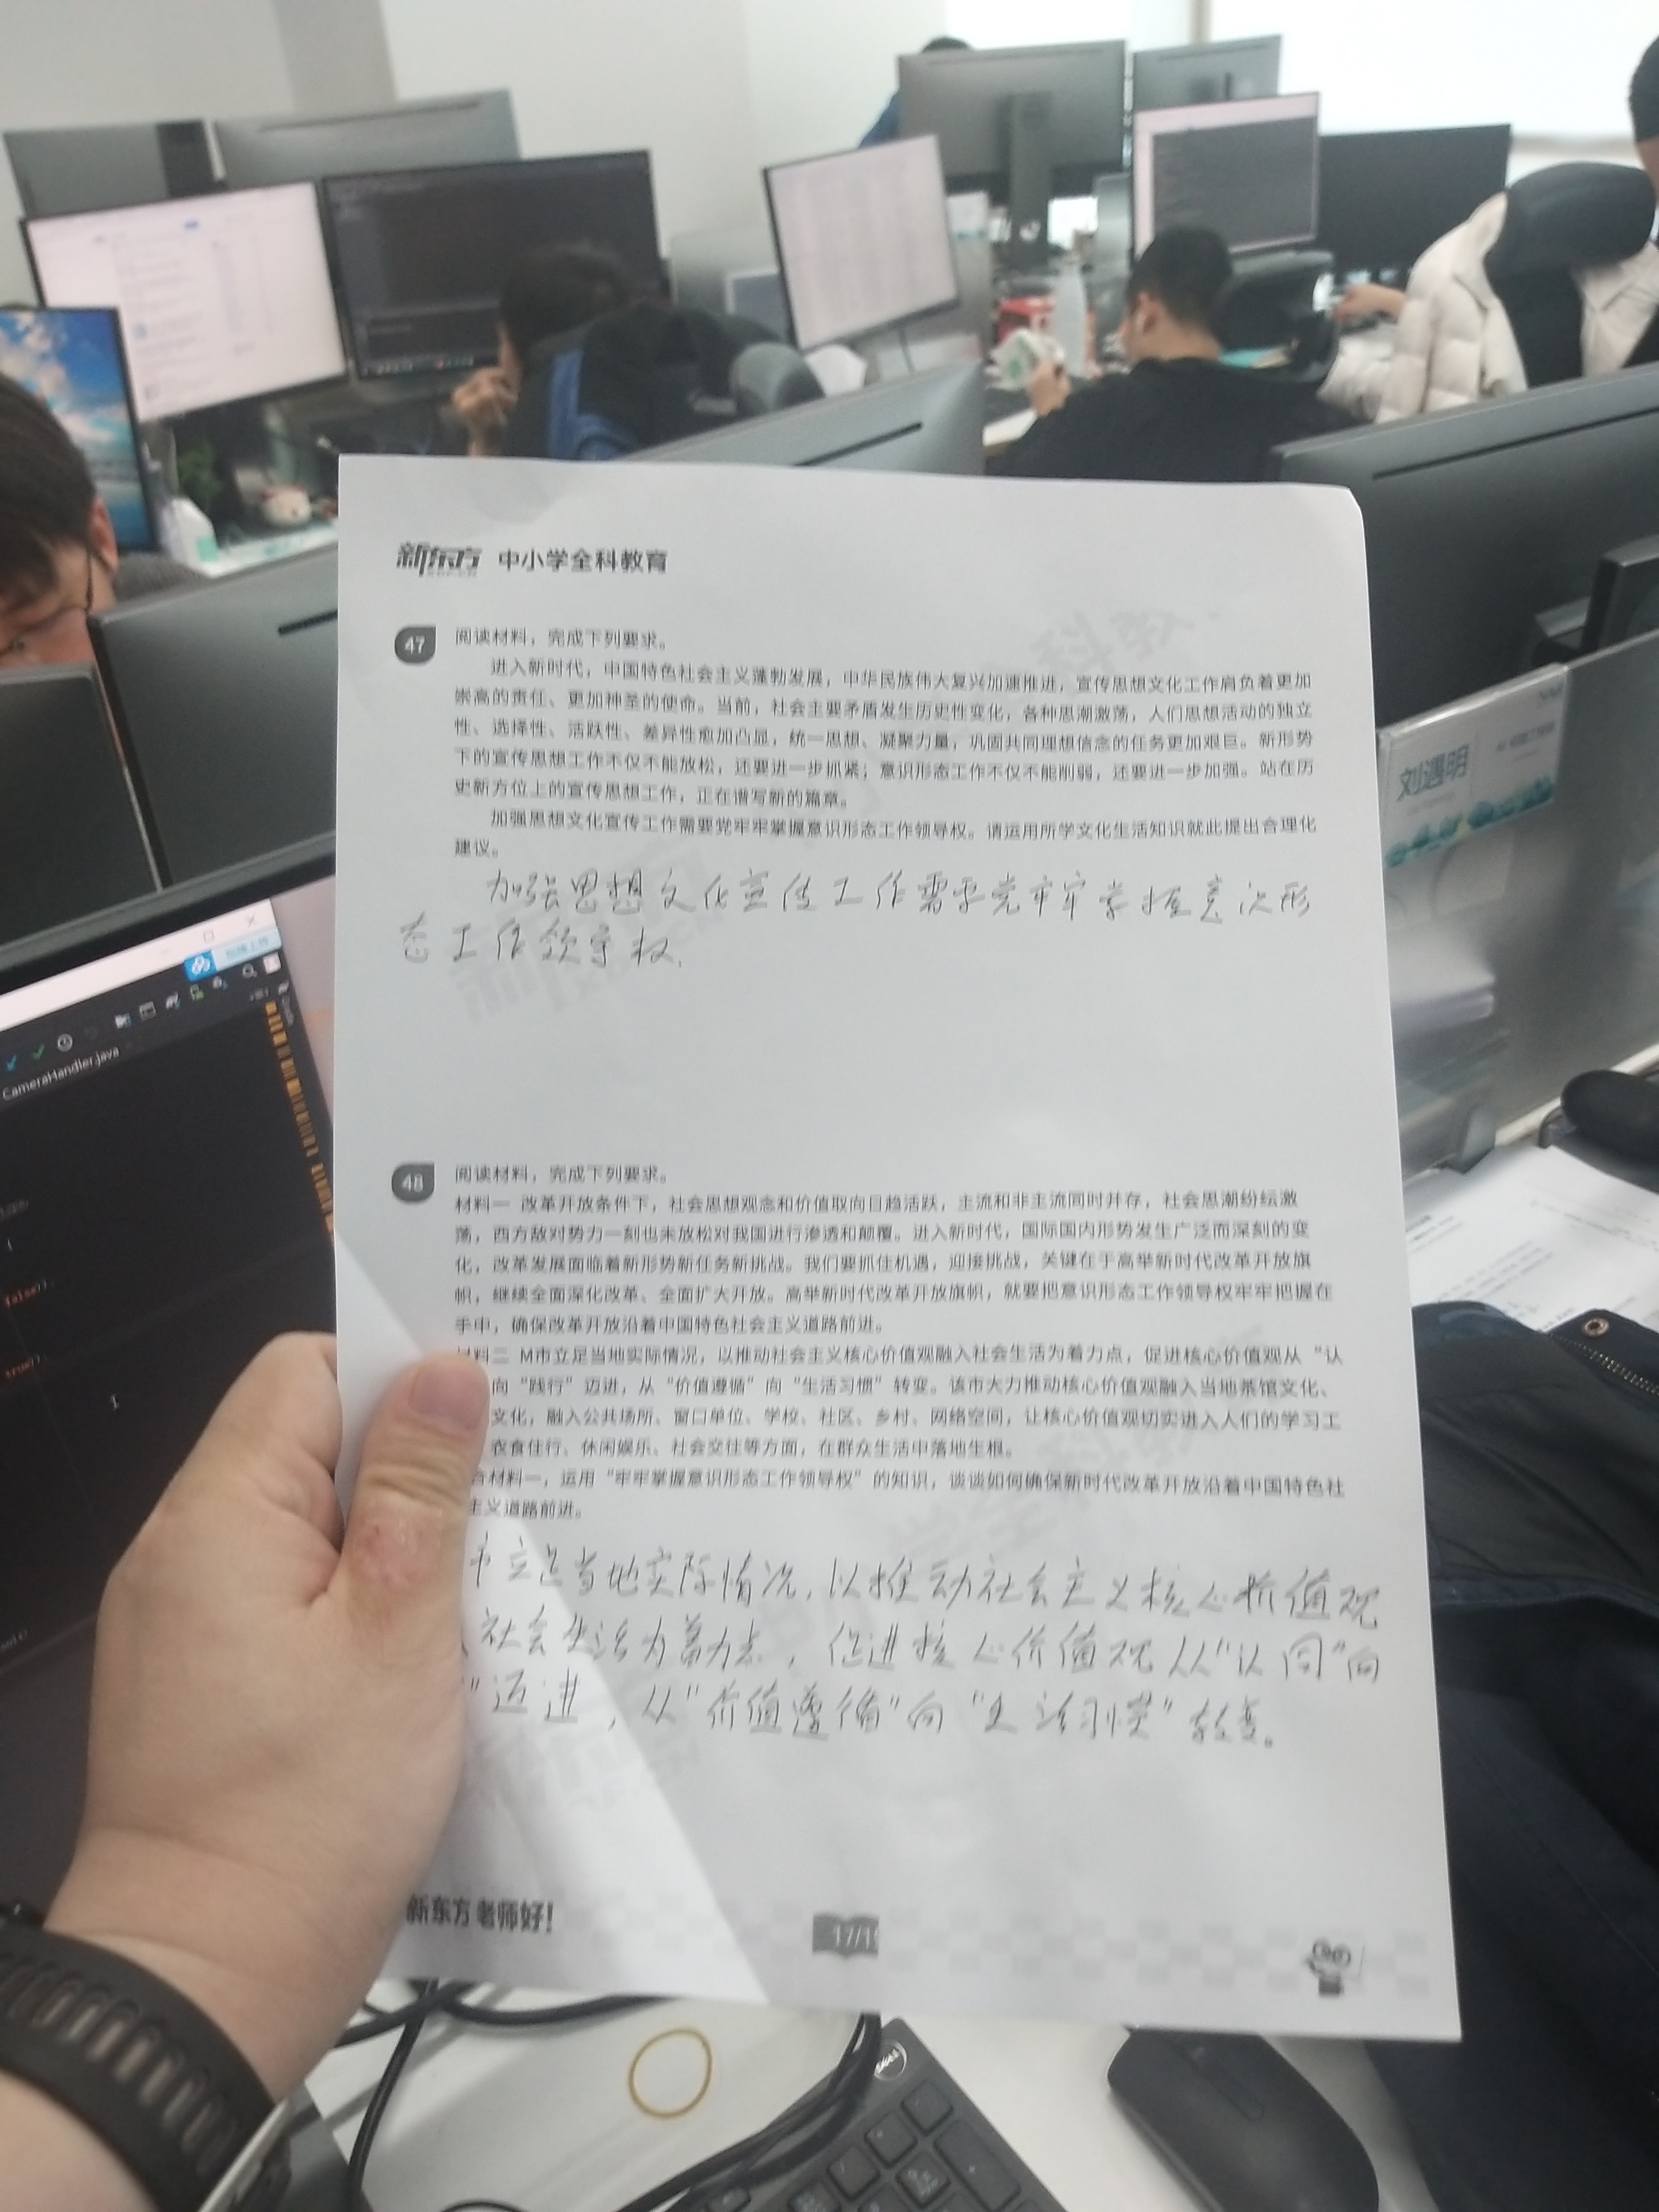 新东方 中小学全科教育
47 阅读材料，完成下列要求。
进入新时代，中国特色社会主义蓬勃发展，中华民族伟大复兴加速推进，宣传思想文化工作肩负着更加
崇高的责任、更加神圣的使命。当前，社会主要矛盾发生历史性变化，各种思潮激荡，人们思想活动的独立
性、选择性、活跃性、差异性愈加凸显，统一思想、凝聚力量，巩固共同理想信念的任务更加艰巨。新形势
下的宣传思想工作不仅不能放松，还要进一步抓紧；意识形态工作不仅不能削弱，还要进一步加强。站在历
史新方位上的宣传思想工作，正在谱写新的篇章。
加强思想文化宣传工作需要党牢牢掌握意识形态工作领导权。请运用所学文化生活知识就此提出合理化
建议。
加强思想文化宣传工作需要党牢牢掌握意识形
态工作领导权.
48 阅读材料，完成下列要求。
材料一 改革开放条件下，社会思想观念和价值取向日趋活跃，主流和非主流同时并存，社会思潮纷纭激
荡，西方敌对势力一刻也未放松对我国进行渗透和颠覆。进入新时代，国际国内形势发生广泛而深刻的变
化，改革发展面临着新形势新任务新挑战。我们要抓住机遇，迎接挑战，关键在于高举新时代改革开放旗
帜，继续全面深化改革、全面扩大开放。高举新时代改革开放旗帜，就要把意识形态工作领导权牢牢把握在
手中，确保改革开放沿着中国特色社会主义道路前进。
料二 M市立足当地实际情况，以推动社会主义核心价值观融入社会生活为着力点，促进核心价值观从“认
向“践行”迈进，从“价值遵循”向“生活习惯”转变。该市大力推动核心价值观融入当地茶馆文化、
文化，融入公共场所、窗口单位、学校、社区、乡村、网络空间，让核心价值观切实进入人们的学习工
衣食住行、休闲娱乐、社会交往等方面，在群众生活中落地生根。
合材料一，运用“牢牢掌握意识形态工作领导权”的知识，谈谈如何确保新时代改革开放沿着中国特色社
主义道路前进。
市立足当地实际情况，以推动社会主义核心价值观
社会生活为着力点，促进核心价值观从“认同”向
”迈进，从“价值遵循”向“生活习惯”转变。
新东方老师好！
17/1
刘遇明
CameraHandler.java
false
true
DELL